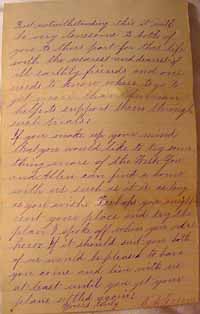 But notwithstanding this it will
be very lonesome to both of
you to thus part for this life
with the nearest and dearest of
all earthly friends and one
needs to know where to go to
get more than
help to support them through
such trials
If you make up your mind
that you would like to try some
thing more of the West you
and Allen can find a home
with us such as it is as long
as you wish Perhaps you might
rent your place and try the
place I spoke of when you was
here If it should suit you both
of us would be pleased to have
you come and live with us
at least until you get your
place settled again
Yours truly